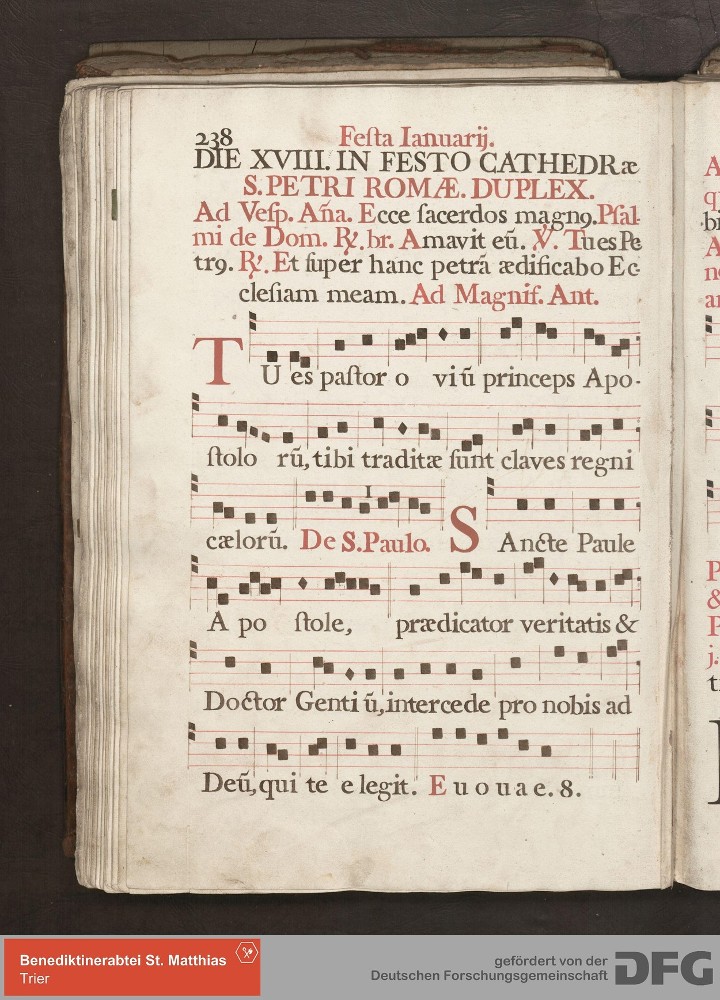 238 Festa Ianuarij.
DIE XVIII. IN FESTO CATHEDRæ
S. PETRI ROMÆ. DUPLEX.
Ad Vesp. Aña. Ecce sacerdos magnꝰ. Psal-
mi de Dom. ℟. br. Amavit eū. ℣. Tu es Pe
trꝰ. ℟. Et super hanc petrā ædificabo Ec-
clesiam meam. Ad Magnif. Ant.
TU es pastor oviū princeps Apo-
stolorū, tibi traditæ sunt claves regni
cælorū. De S. Paulo. SAncte Paule
Apostole, prædicator veritatis &
Doctor Gentiū, intercede pro nobis ad
Deū, qui te elegit. Euouae. 8.
Benediktinerabtei St. Matthias
Trier
gefördert von der
Deutschen Forschungsgemeinschaft
DFG